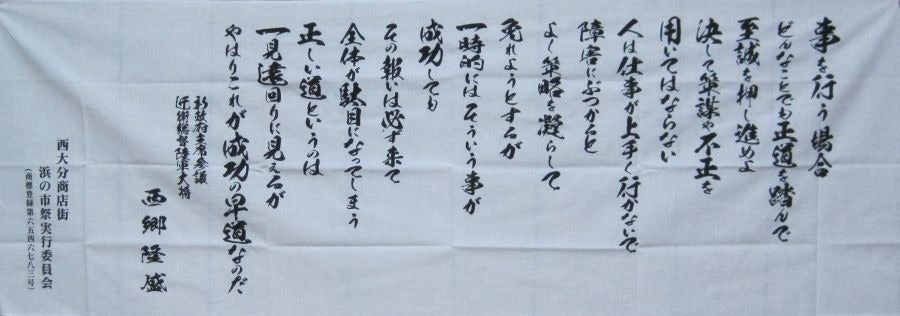 事を行う場合
どんなことでも正道を踏んで
至誠を押し進めよ
決して策謀や不正を
用いてはならない
人は仕事が上手く行かないで
障害にぶつかると
よく策略を凝らして
免れようとするが
一時的にはそういう事が
成功しても
その報いは必ず来て
全体が駄目になってしまう
正しい道というのは
一見遠回りに見えるが
やはりこれが成功の早道なのだ
新政府主席参議
近衛総督陸軍大将
西郷隆盛
西大分商店街
浜の市祭実行委員会
(商標登録第六五四六七八三号)